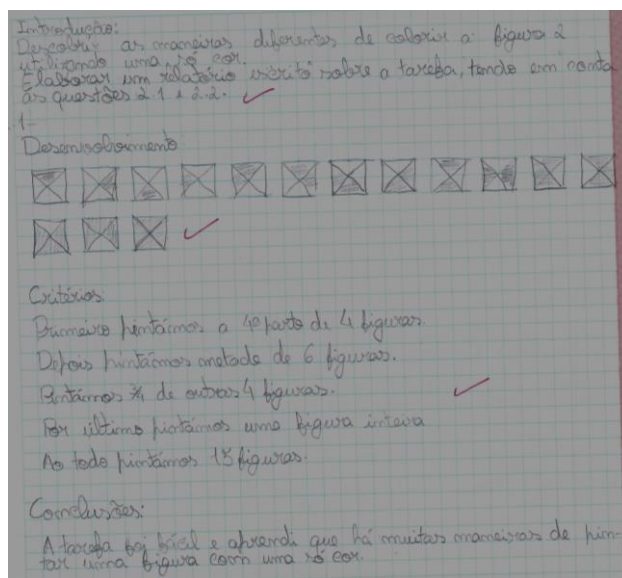 Introdução:
Descobrir as maneiras diferentes de colorir a figura 2
utilizando uma só cor.
Elaborar um relatório escrito sobre a tarefa, tendo em conta
as questões 2.1 e 2.2.
1-
Desenvolvimento
Critérios
Primeiro pintámos a 4ª parte de 4 figuras.
Depois pintámos metade de 6 figuras.
Pintámos ¾ de outras 4 figuras.
Por último pintámos uma figura inteira
Ao todo pintámos 15 figuras.
Conclusões:
A tarefa foi fácil e aprendi que há muitas maneiras de pin-
tar uma figura com uma só cor.